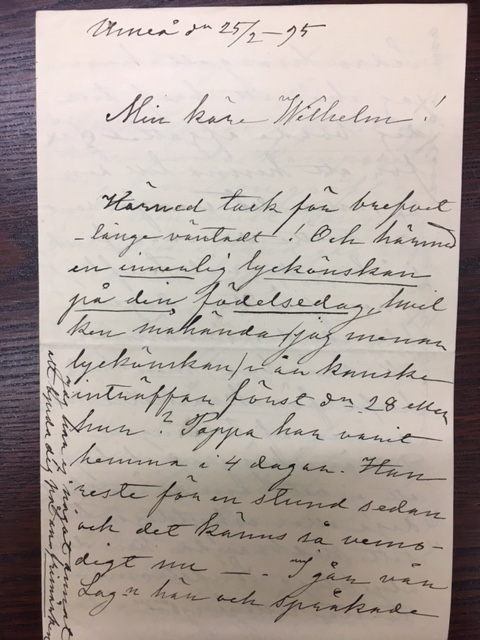 Umeå dn 25/2 – 95
Min käre Wilhelm!
Härmed tack för brefvet
– länge väntadt! Och härmed
en innerlig lyckönskan
på din födelsedag, hvil
ken måhända /jag menar
lyckönskan/ i år kanske
inträffar först dn 28 eller
hur? Pappa har varit
hemma i 4 dagar. Han
reste för en stund sedan
och det känns så vemo-
digt nu –. I går var
Lag-n här och språkade
har ej något annat
att bjuda dig på än frimärken